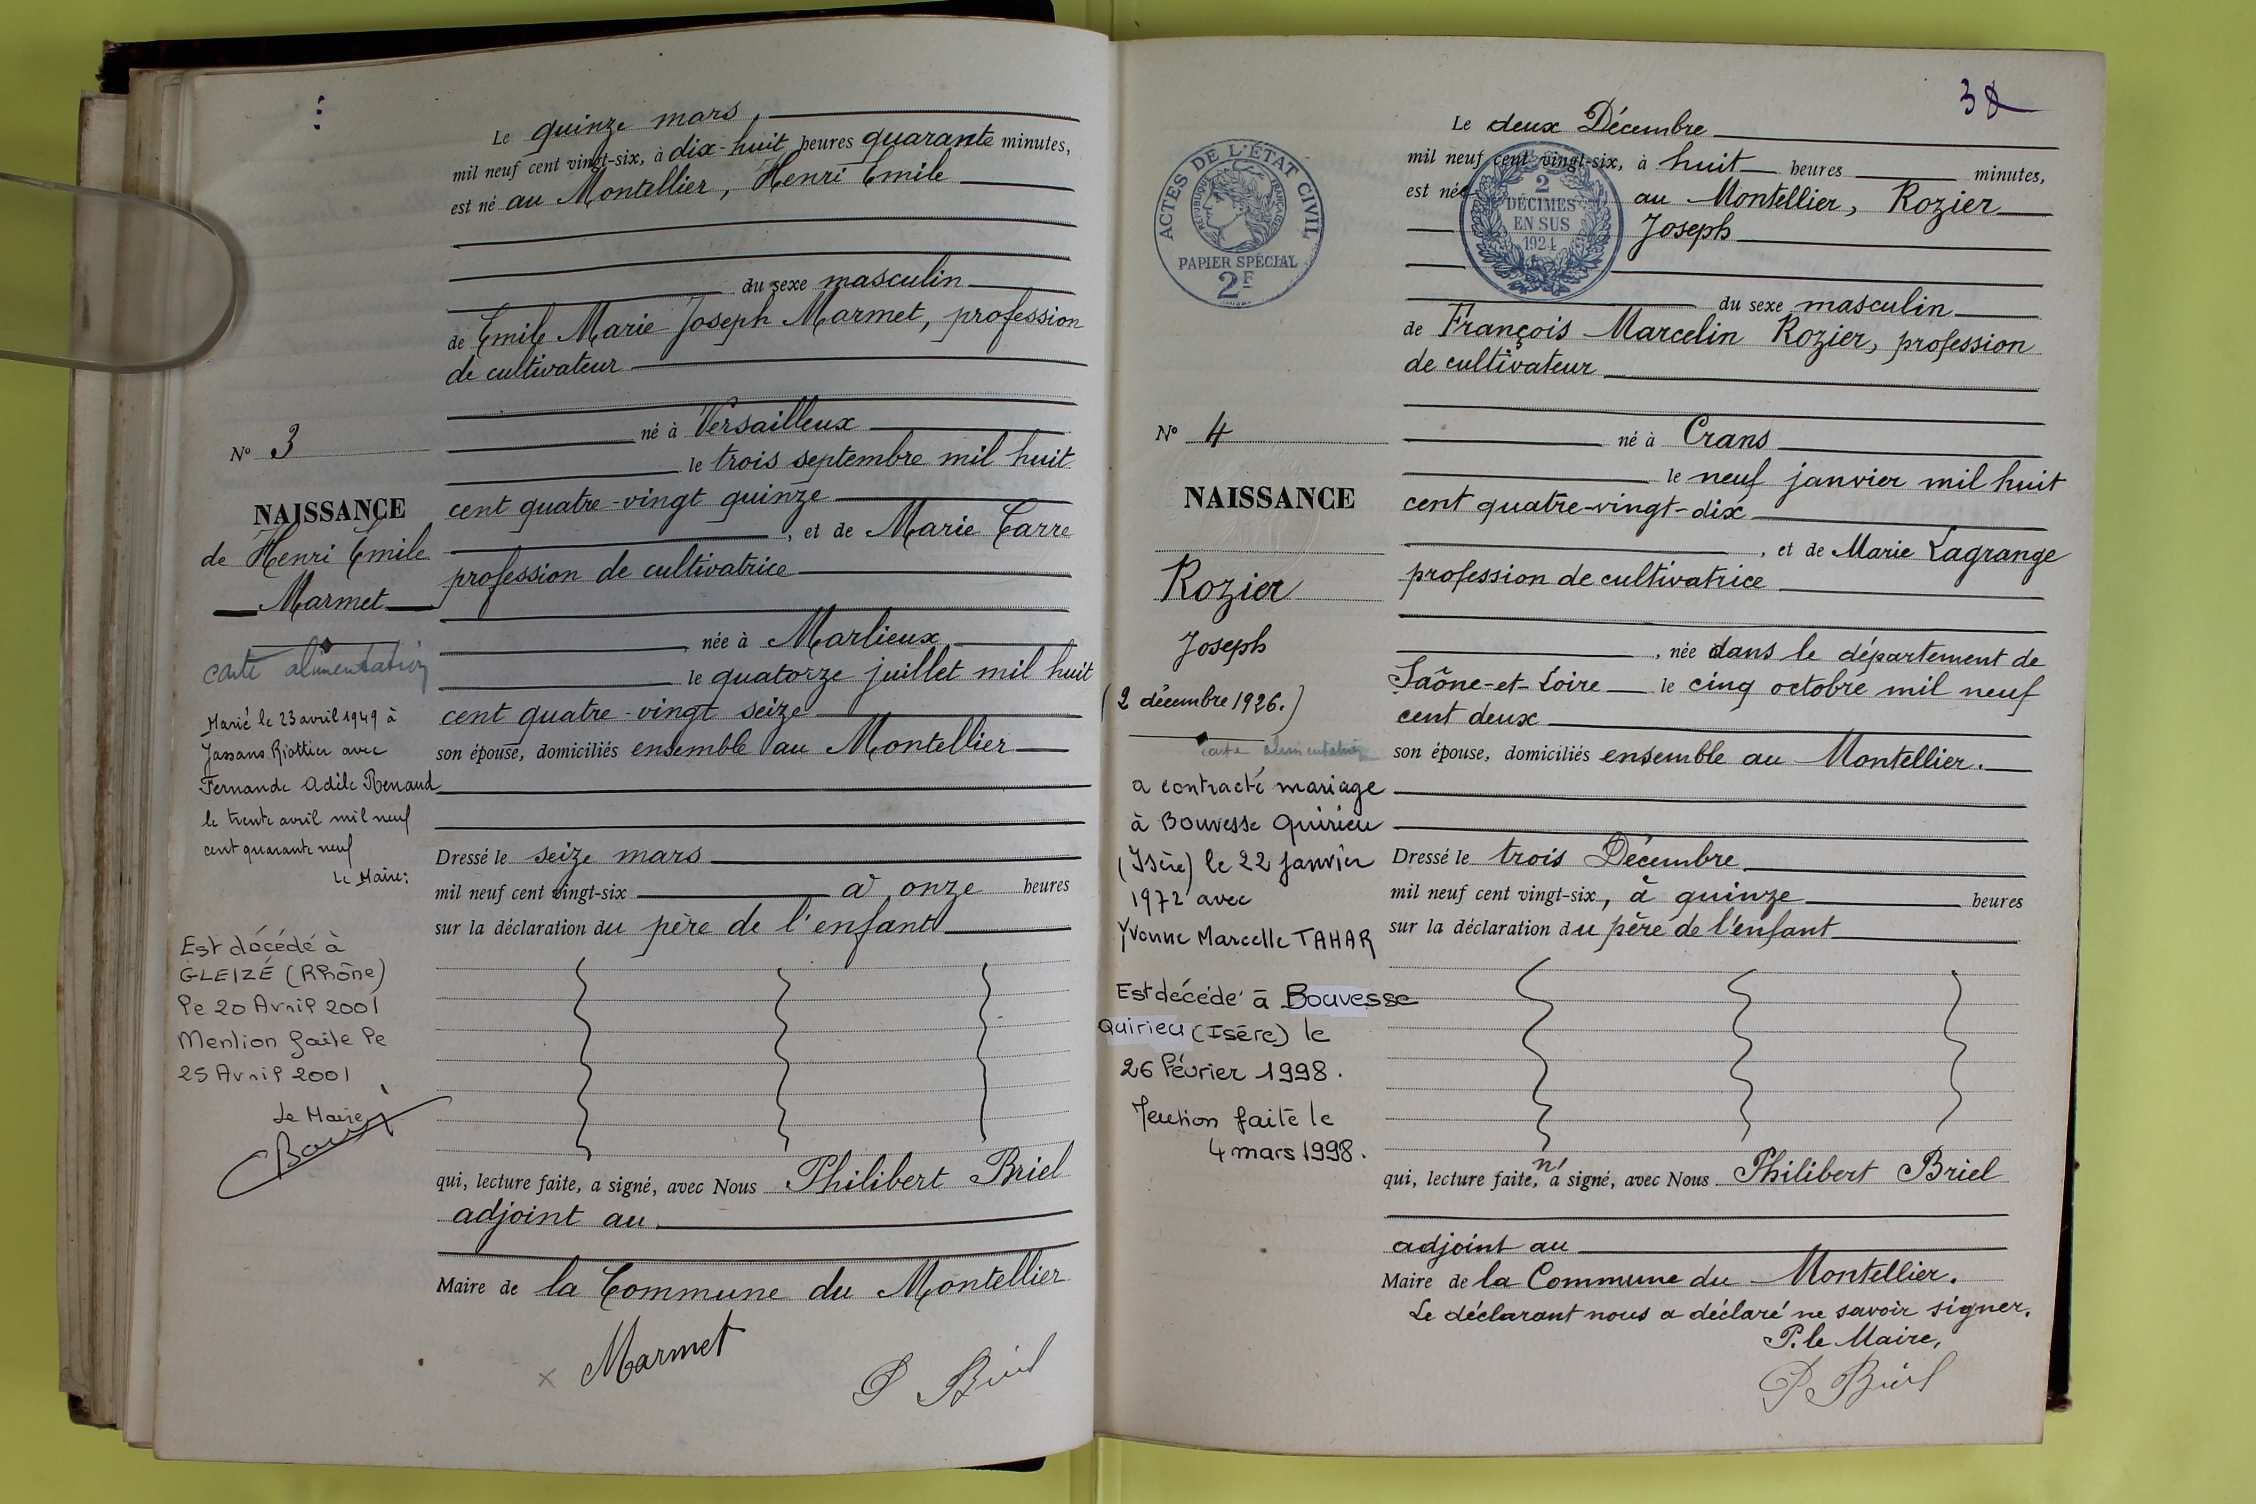 Le quinze mars,
mil neuf cent vingt-six, à dix-huit heures quarante minutes,
est né au Montellier, Henri Emile
du sexe masculin
de Emile Marie Joseph Marmet, profession
de cultivateur
né à Versailleux
le trois septembre mil huit
cent quatre-vingt quinze
, et de Marie Carre
profession de cultivatrice
, née à Marlieux
le quatorze juillet mil huit
cent quatre-vingt seize
son épouse, domiciliés ensemble au Montellier
Dressé le seize mars
mil neuf cent vingt-six à onze heures
sur la déclaration du père de l'enfant
qui, lecture faite, a signé, avec Nous Philibert Briel
adjoint au
Maire de la Commune du Montellier
Marmet
P Briel
N° 3
NAISSANCE
de Henri Emile
Marmet
carte alimentation
Marié le 23 avril 1949 à
Jassans Riottier avec
Fernande Adèle Renaud
le trente avril mil neuf
cent quarante neuf
Le Maire:
Est décédé à
GLEIZÉ (Rhône)
le 20 Avril 2001
Mention faite le
25 Avril 2001
Le Maire,
38
Le deux Décembre
mil neuf cent vingt-six, à huit heures minutes,
est né au Montellier, Rozier
Joseph
du sexe masculin
de François Marcelin Rozier, profession
de cultivateur
né à Crans
le neuf janvier mil huit
cent quatre-vingt-dix
, et de Marie Lagrange
profession de cultivatrice
, née dans le département de
Saône-et-Loire le cinq octobre mil neuf
cent deux
son épouse, domiciliés ensemble au Montellier.
Dressé le trois Décembre
mil neuf cent vingt-six, à quinze heures
sur la déclaration du père de l'enfant
qui, lecture faite, n'a signé, avec Nous Philibert Briel
adjoint au
Maire de la Commune du Montellier.
Le déclarant nous a déclaré ne savoir signer.
P. le Maire,
P Briel
ACTES DE L'ÉTAT CIVIL
RÉPUBLIQUE FRANÇAISE
PAPIER SPÉCIAL
2F
2
DÉCIMES
EN SUS
1924
N° 4
NAISSANCE
Rozier
Joseph
(2 décembre 1926.)
carte alimentation
a contracté mariage
à Bouvesse Quirieu
(Isère) le 22 janvier
1972 avec
Yvonne Marcelle TAHAR
Est décédé à Bouvesse
Quirieu (Isère) le
26 février 1998.
Mention faite le
4 mars 1998.